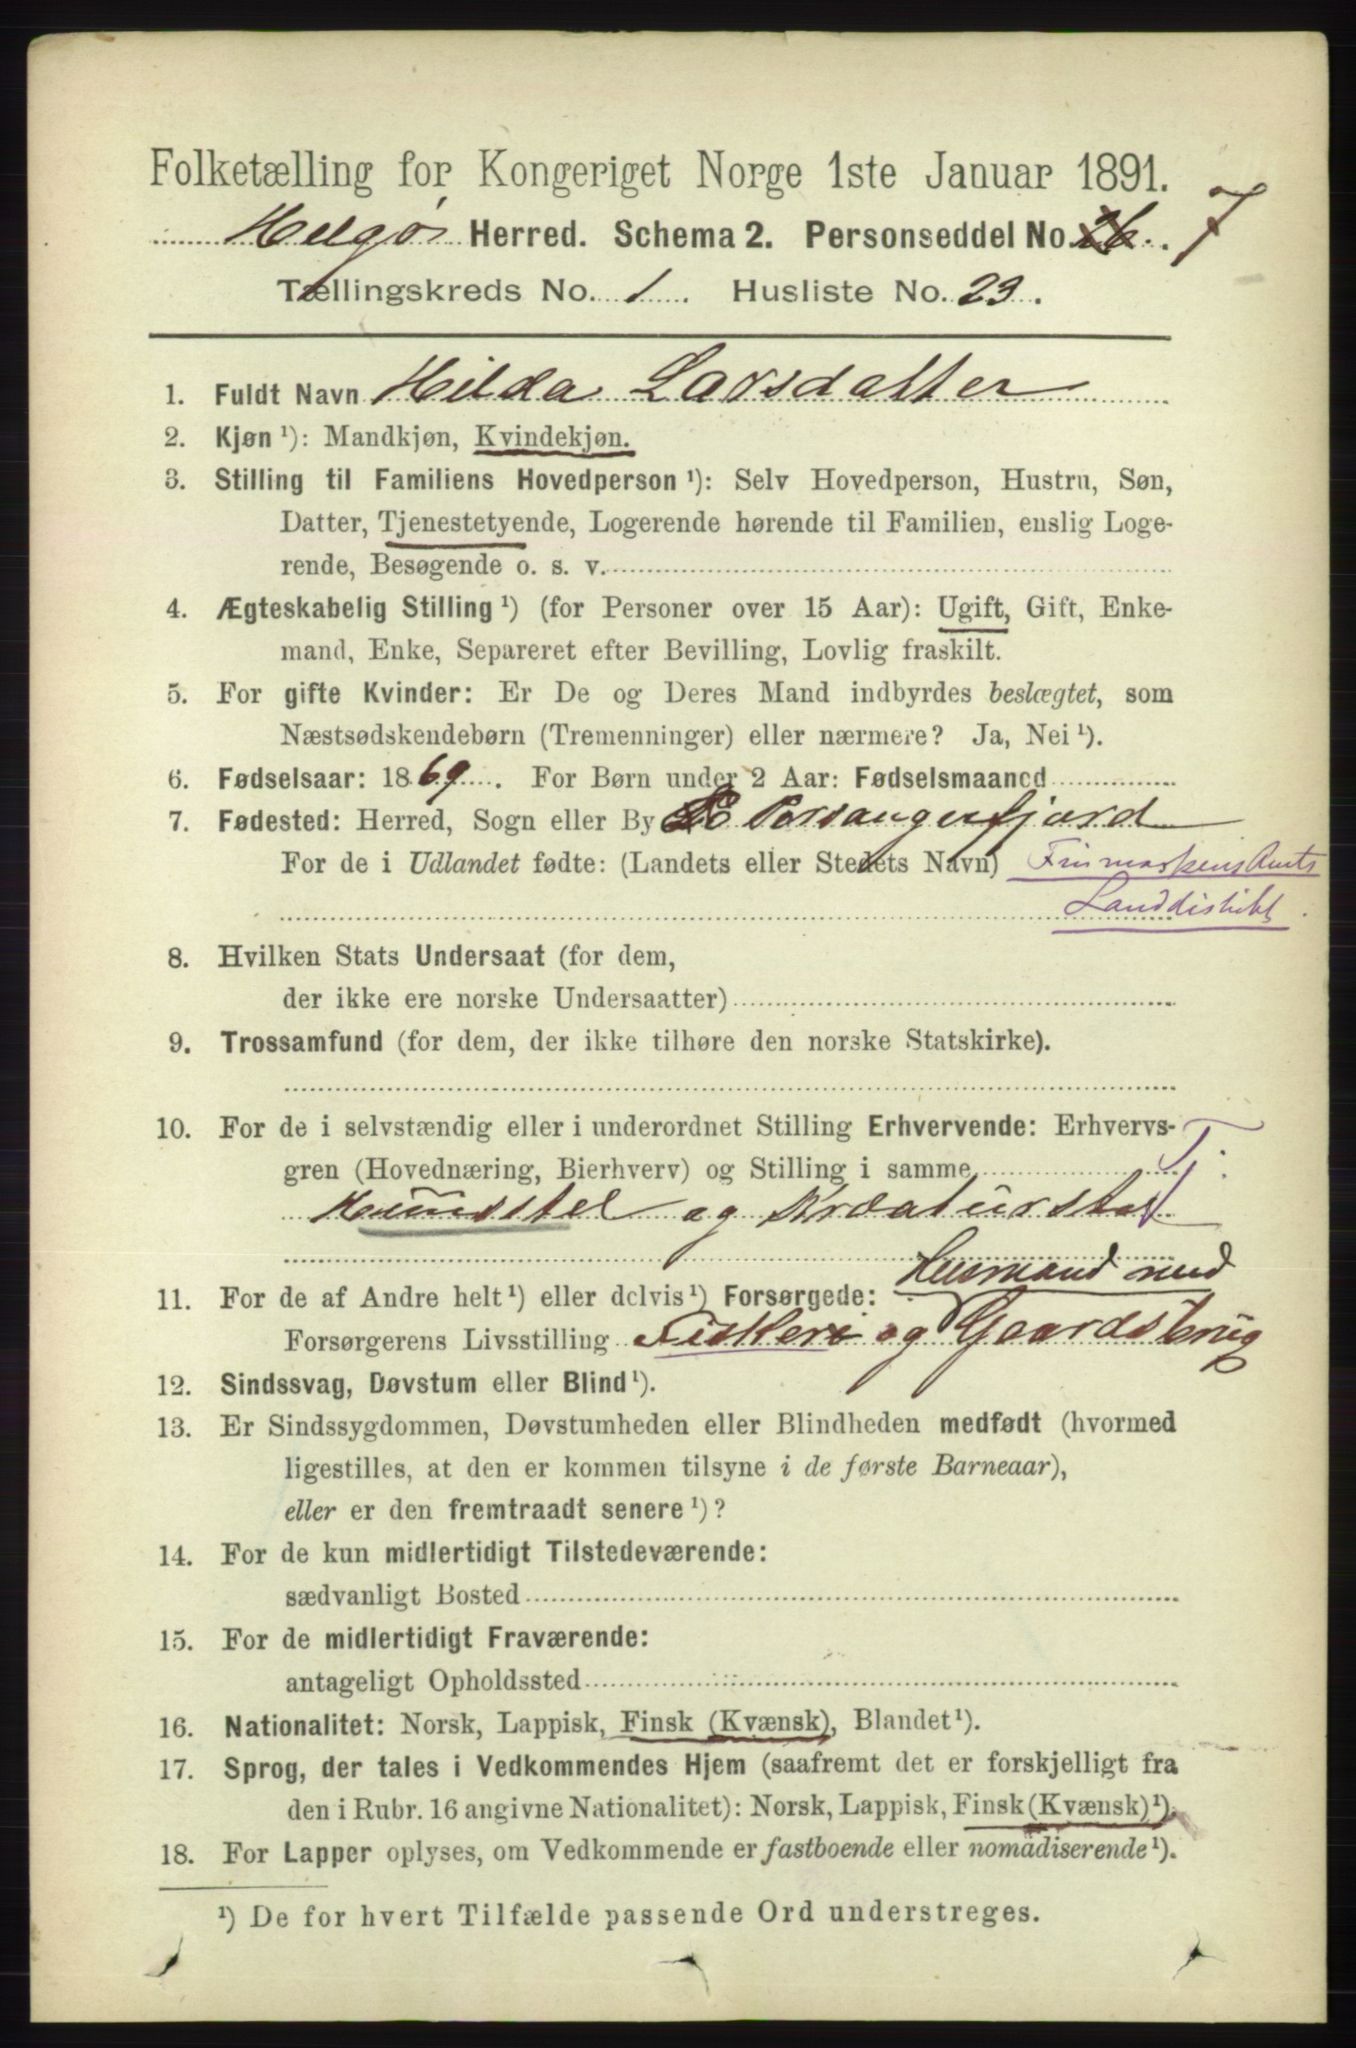 Folketælling for Kongeriget Norge 1ste Januar 1891.
Helgø Herred. Schema 2. Personseddel No. 26. 7
Tællingskreds No. 1. Husliste No. 23.
1. Fuldt Navn Hilda Larsdatter
2. Kjøn ¹): Mandkjøn, Kvindekjøn.
3. Stilling til Familiens Hovedperson ¹): Selv Hovedperson, Hustru, Søn,
Datter, Tjenestetyende, Logerende hørende til Familien, enslig Loge-
rende, Besøgende o. s. v.
4. Ægteskabelig Stilling ¹) (for Personer over 15 Aar): Ugift, Gift, Enke-
mand, Enke, Separeret efter Bevilling, Lovlig fraskilt.
5. For gifte Kvinder: Er De og Deres Mand indbyrdes beslægtet, som
Næstsødskendebørn (Tremenninger) eller nærmere? Ja, Nei ¹).
6. Fødselsaar: 1869. For Børn under 2 Aar: Fødselsmaaned
7. Fødested: Herred, Sogn eller By Porsangerfjord
For de i Udlandet fødte: (Landets eller Stedets Navn) Finmarkens Amts
Landdistrikt.
8. Hvilken Stats Undersaat (for dem,
der ikke ere norske Undersaatter)
9. Trossamfund (for dem, der ikke tilhøre den norske Statskirke).
10. For de i selvstændig eller i underordnet Stilling Erhvervende: Erhvervs-
gren (Hovednæring, Bierhverv) og Stilling i samme T.
Huusstel og Kreaturstel
11. For de af Andre helt ¹) eller delvis ¹) Forsørgede: Husmand med
Forsørgerens Livsstilling Fiskeri og Gaardsbrug
12. Sindssvag, Døvstum eller Blind ¹).
13. Er Sindssygdommen, Døvstumheden eller Blindheden medfødt (hvormed
ligestilles, at den er kommen tilsyne i de første Barneaar),
eller er den fremtraadt senere ¹)?
14. For de kun midlertidigt Tilstedeværende:
sædvanligt Bosted
15. For de midlertidigt Fraværende:
antageligt Opholdssted
16. Nationalitet: Norsk, Lappisk, Finsk (Kvænsk), Blandet ¹).
17. Sprog, der tales i Vedkommendes Hjem (saafremt det er forskjelligt fra
den i Rubr. 16 angivne Nationalitet): Norsk, Lappisk, Finsk (Kvænsk) ¹).
18. For Lapper oplyses, om Vedkommende er fastboende eller nomadiserende ¹).
¹) De for hvert Tilfælde passende Ord understreges.